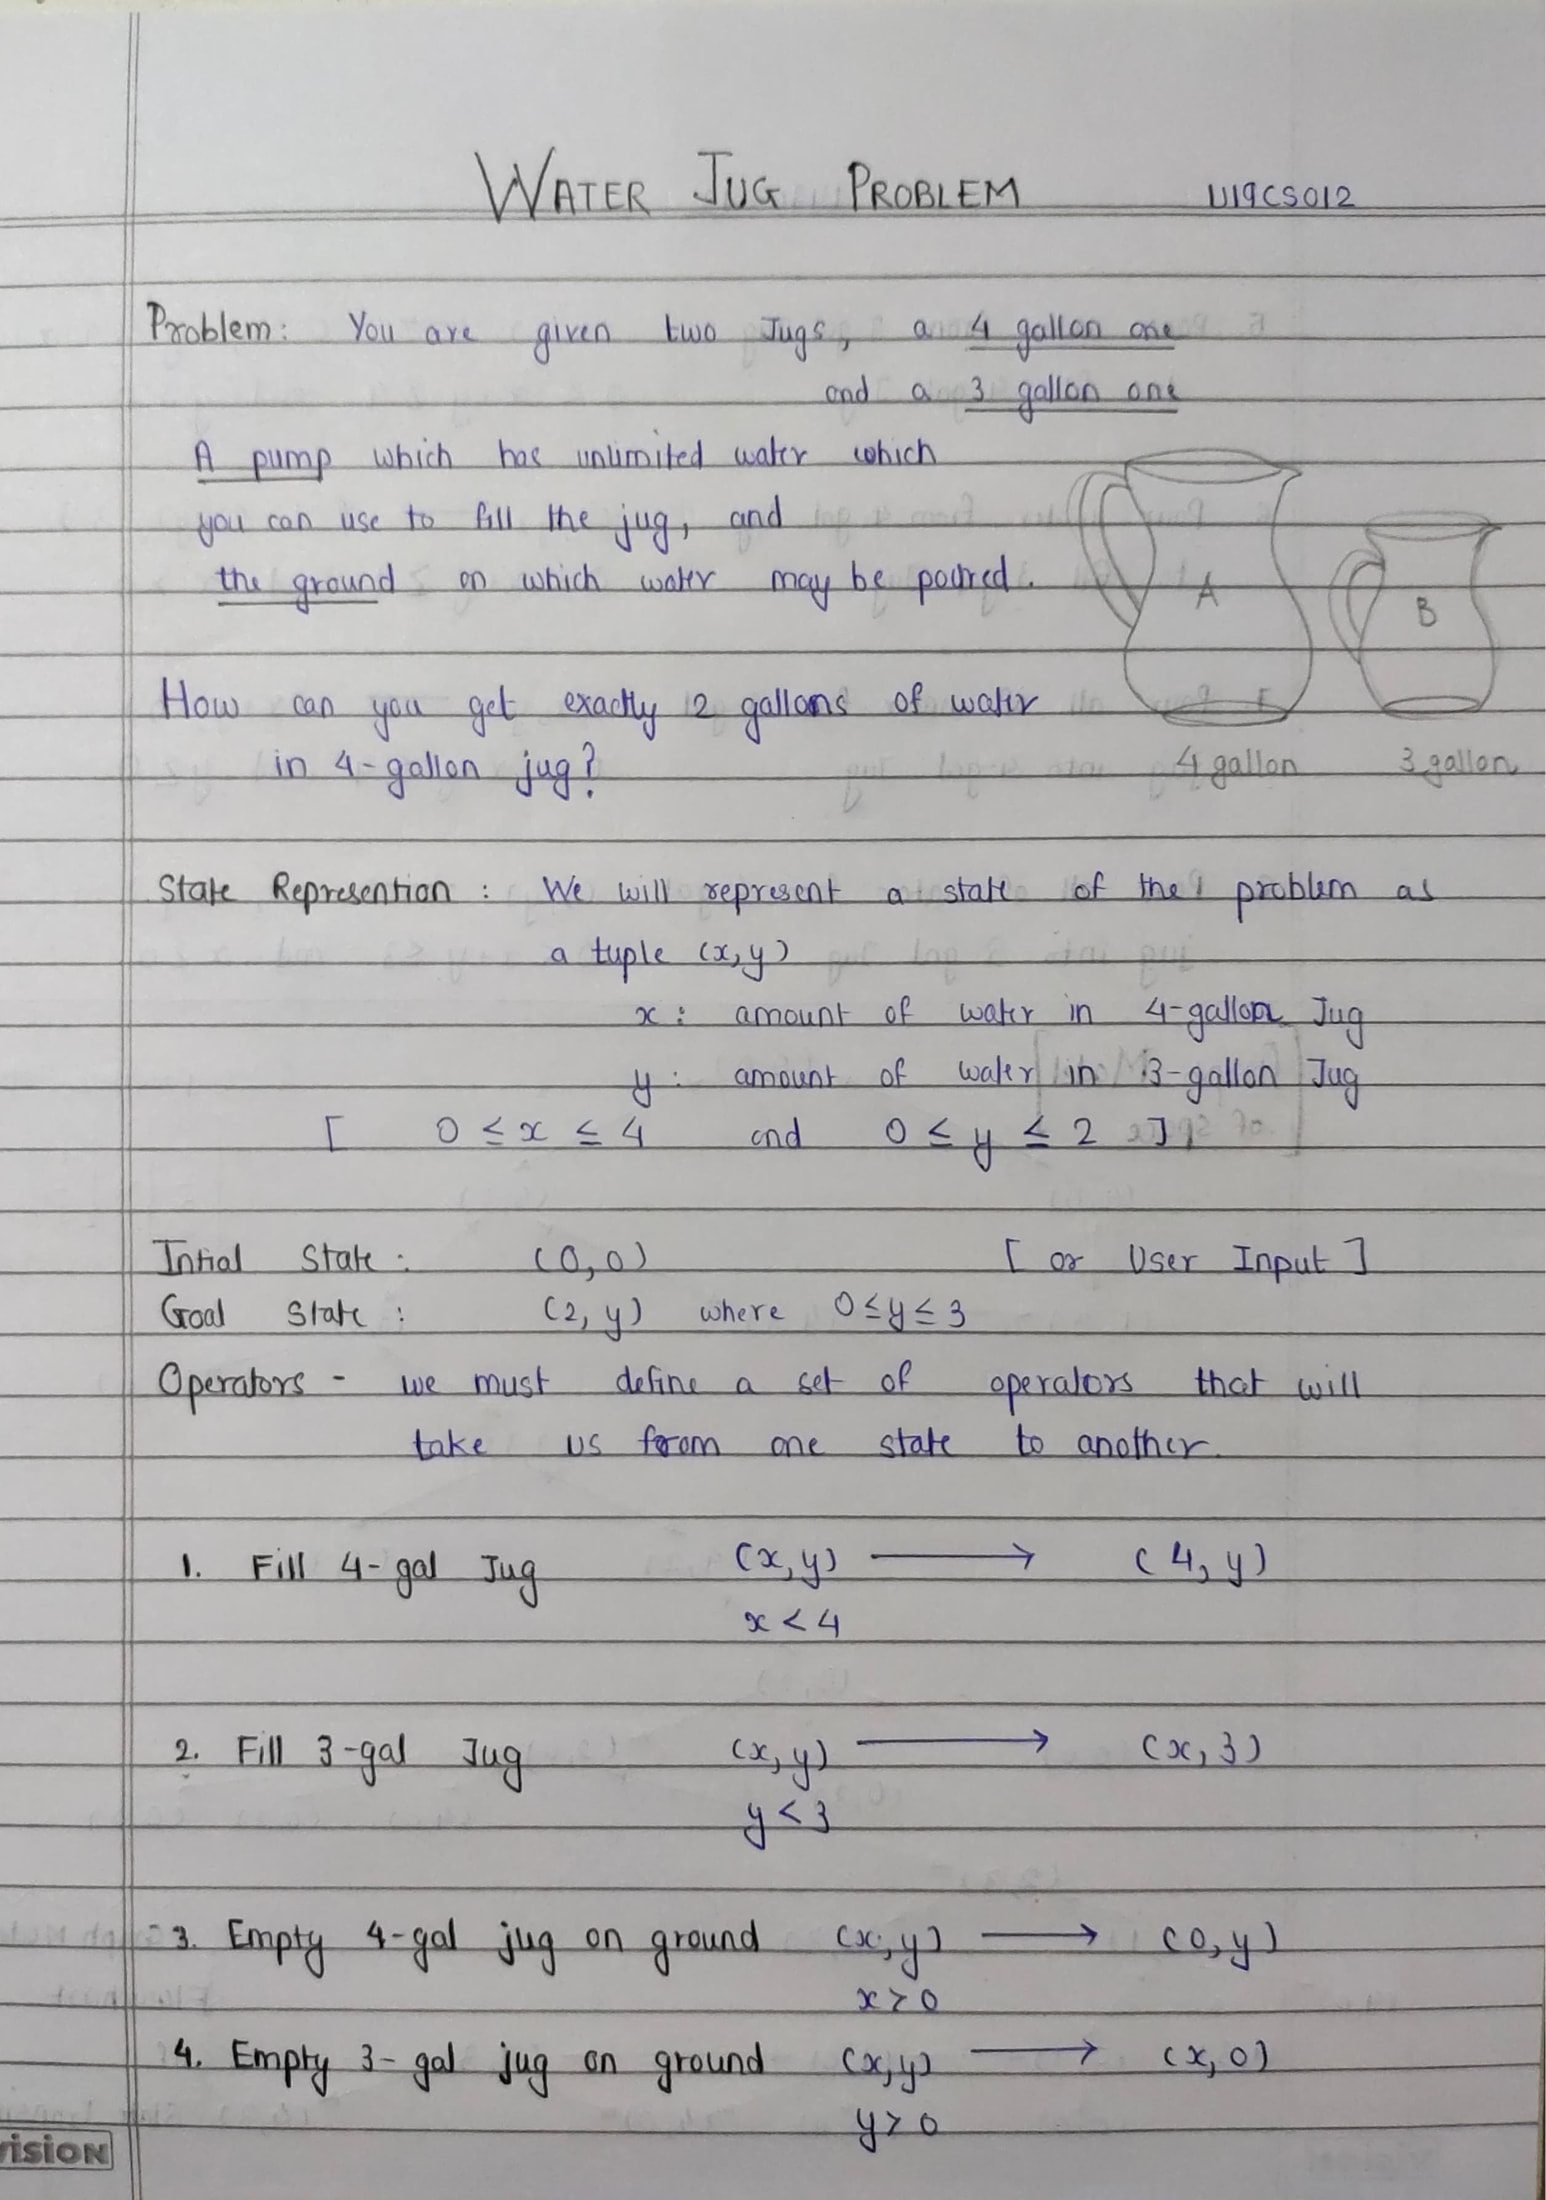 WATER JUG PROBLEM U19CS012
Problem: You are given two Jugs, a 4 gallon one
and a 3 gallon one
A pump which has unlimited water which
you can use to fill the jug, and
the ground on which water may be poured.
A B
How can you get exactly 2 gallons of water
in 4-gallon jug?
4 gallon 3 gallon
State Represention : We will represent a state of the problem as
a tuple (x,y)
x : amount of water in 4-gallon Jug
y : amount of water in 3-gallon Jug
[ 0 ≤ x ≤ 4 and 0 ≤ y ≤ 2 ]
Intial State : (0,0) [ or User Input ]
Goal State : (2, y) where 0≤y≤3
Operators - we must define a set of operators that will
take us from one state to another.
1. Fill 4-gal Jug (x,y) → (4, y)
x < 4
2. Fill 3-gal Jug (x,y) → (x, 3)
y < 3
3. Empty 4-gal jug on ground (x,y) → (0,y)
x > 0
4. Empty 3-gal jug on ground (x,y) → (x,0)
y > 0